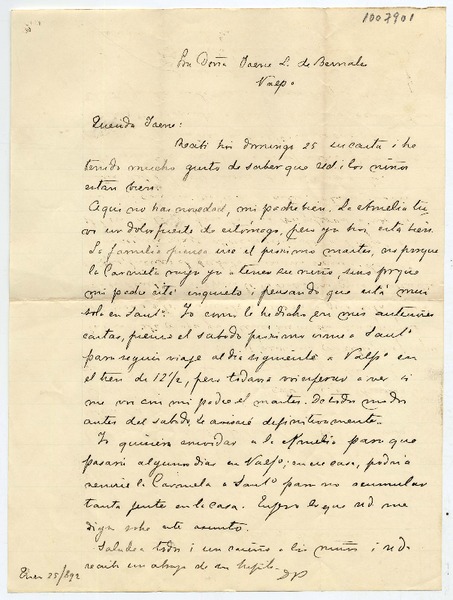 1007901
Sra Doña Jaene L. de Bernales
Valpo
Querida Jaene:
Recibí hoi domingo 25 su carta i he
tenido mucho gusto de saber que ud i los niños
están bien.
Aquí no hai novedad, mi padre bien. La Amelia tu-
vo un dolor fuerte de estómago, pero ya hoi está bien.
La familia piensa irse el próximo martes, no porque
la Carmela vaya ya a tener su niño, sino porque
mi padre está inquieto i pensando que está mui
solo en Santo. Yo como le he dicho en mis anteriores
cartas, pienso el sabado próximo irme a Santo
para seguir viaje al dia siguiente a Valpo en
el tren de 12 1/2, pero todavia voi a ver si
me voi con mi padre el martes. De todos modos
antes del sabado, le avisaré definitivamente.
Yo quisiera convidar a la Amelia para que
pasara algunos dias en Valpo; en ese caso, podria
venirse la Carmela a Santo para no acumular
tanta jente en la casa. Espero lo que ud me
diga sobre este asunto.
Saludos a todos i un cariño a los niños i ud
reciba un abrazo de su
Enero 25/892